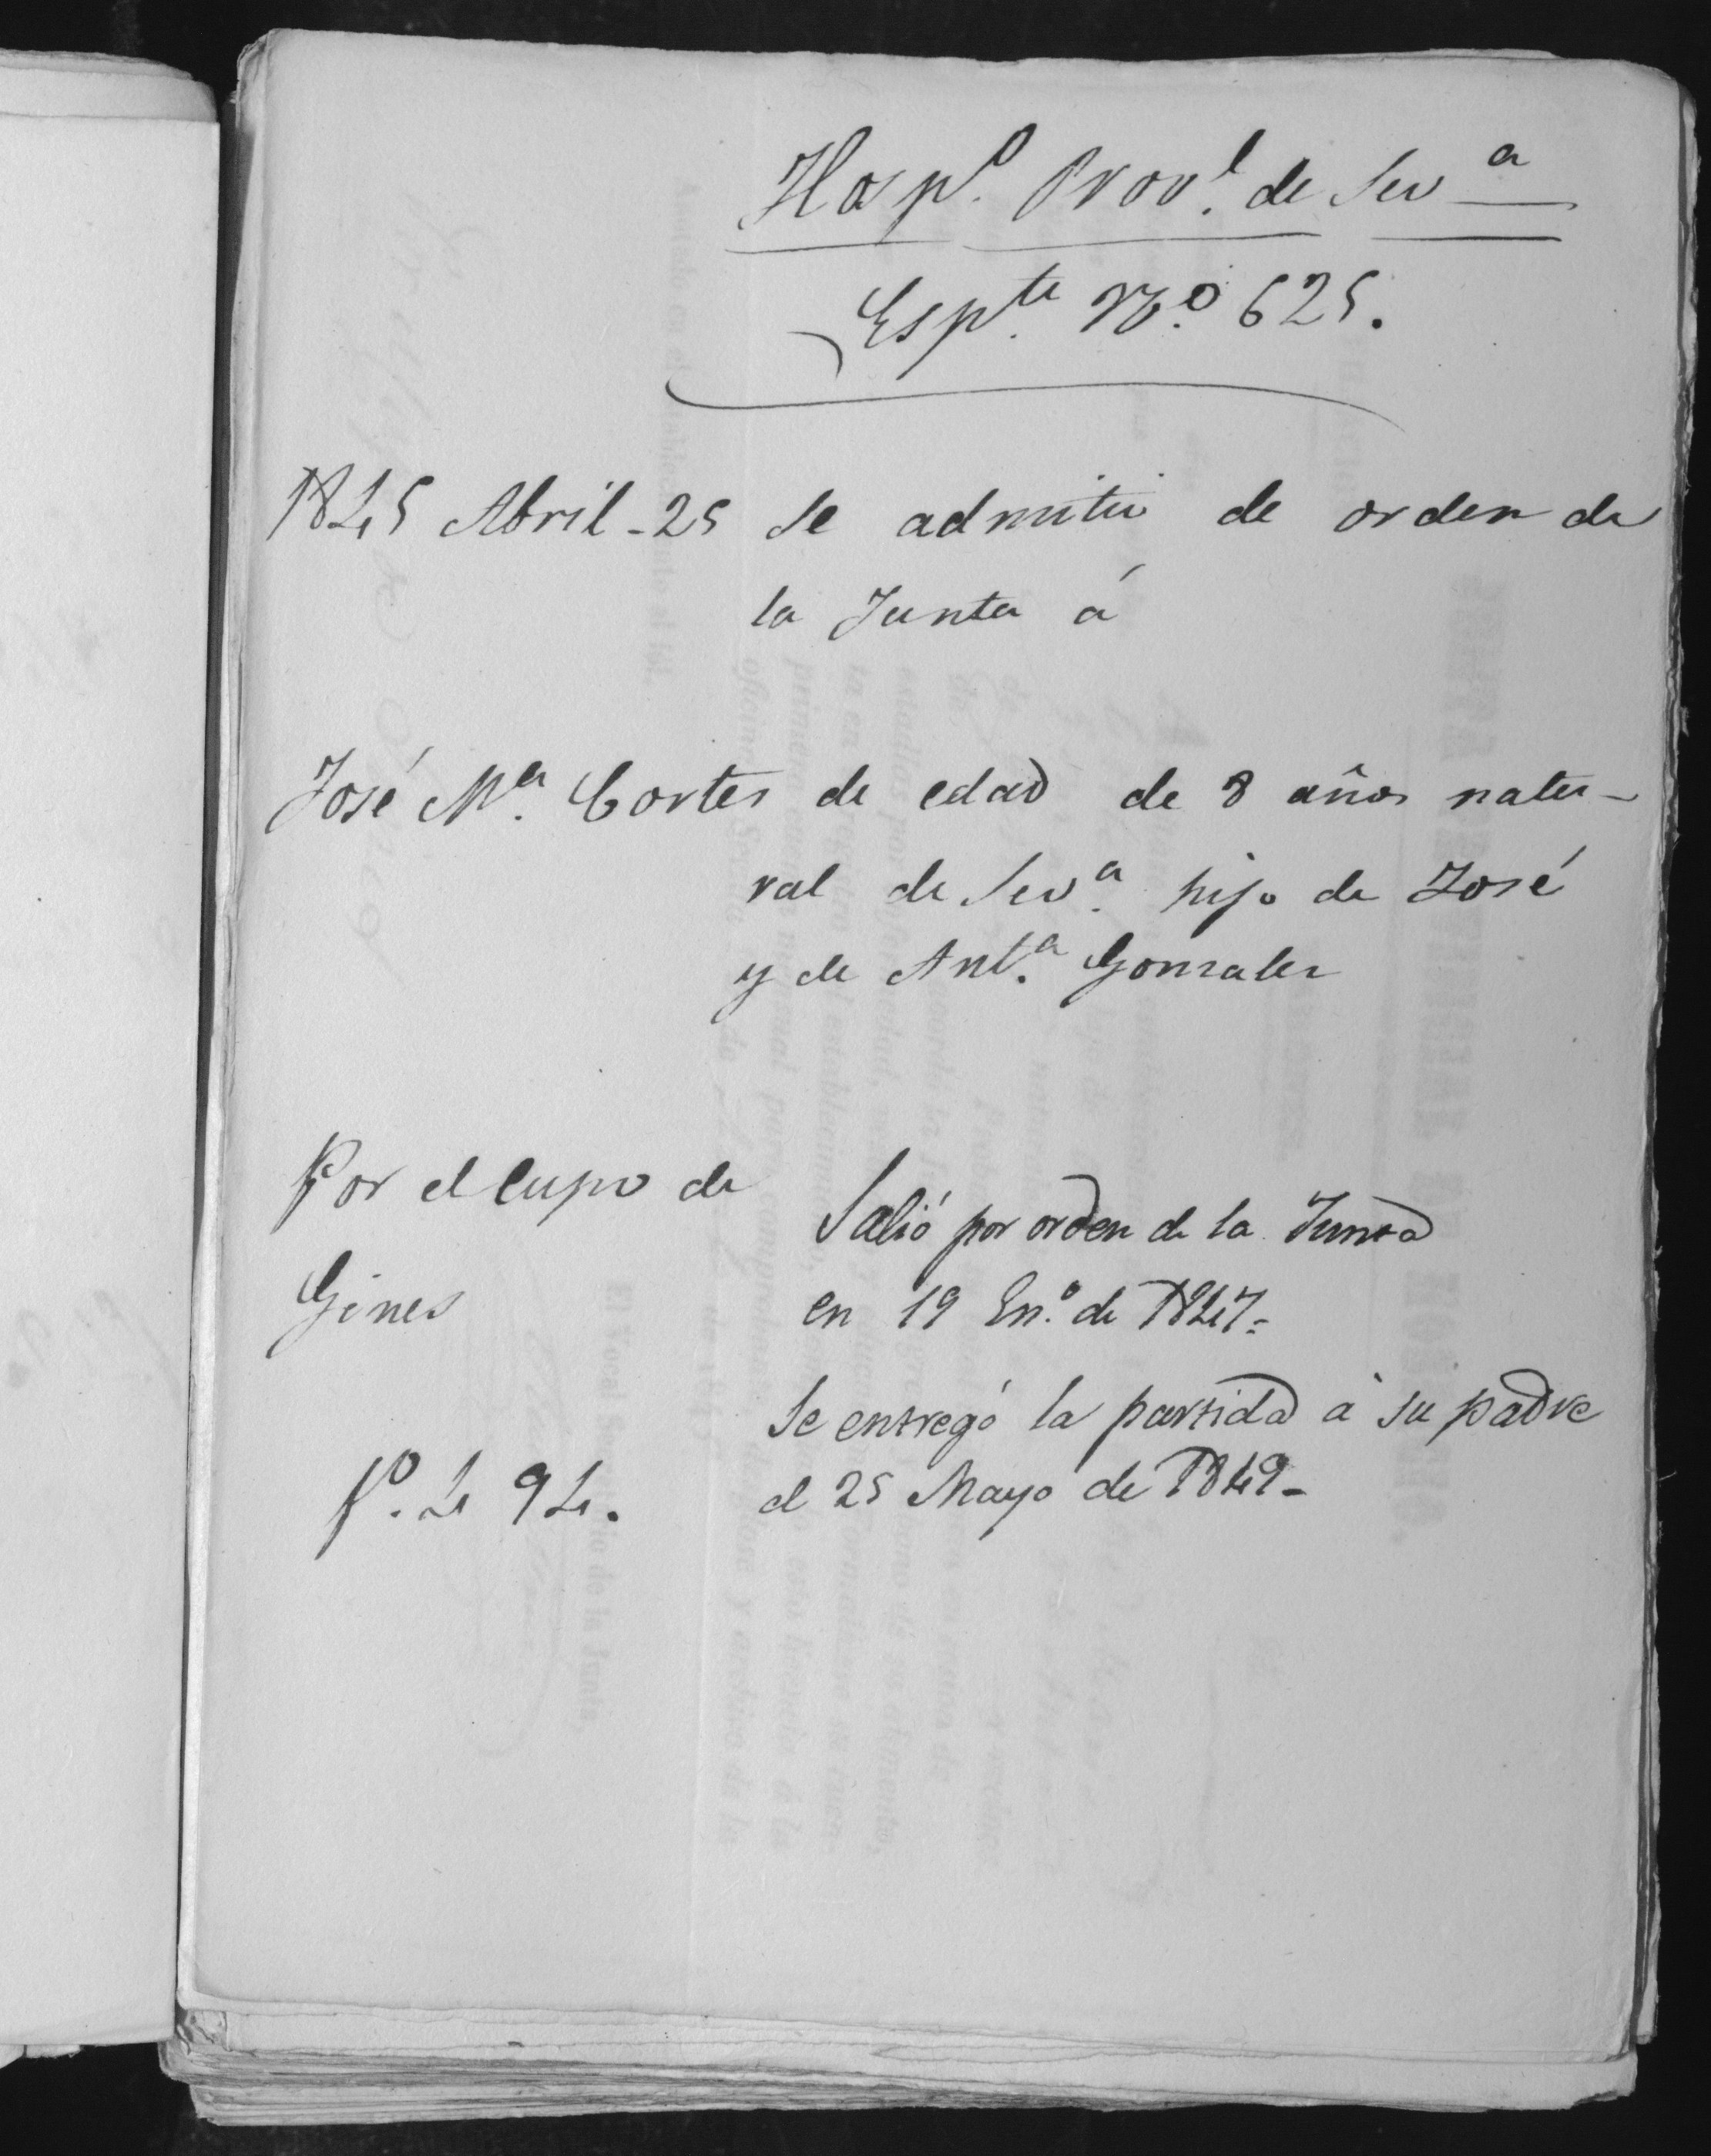 Hosp.º Prov.l de Sev.a
Esp.te Nº. 625.
1845 Abril - 25 Se admitió de orden de
la Junta á
José M.a Cortes de edad de 8 años natu-
ral de Sev.a hijo de José
y de Ant.a Gonzalez
Por el cupo de
Gines
Salió por orden de la Junta
en 19 En.º de 1847=
Se entregó la partida á su padre
el 25 Mayo de 1849-
fº. 494.